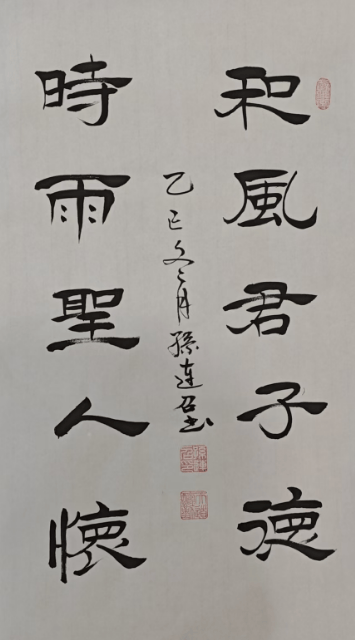 和風君子德
時雨聖人懷
乙巳冬月孫連召书